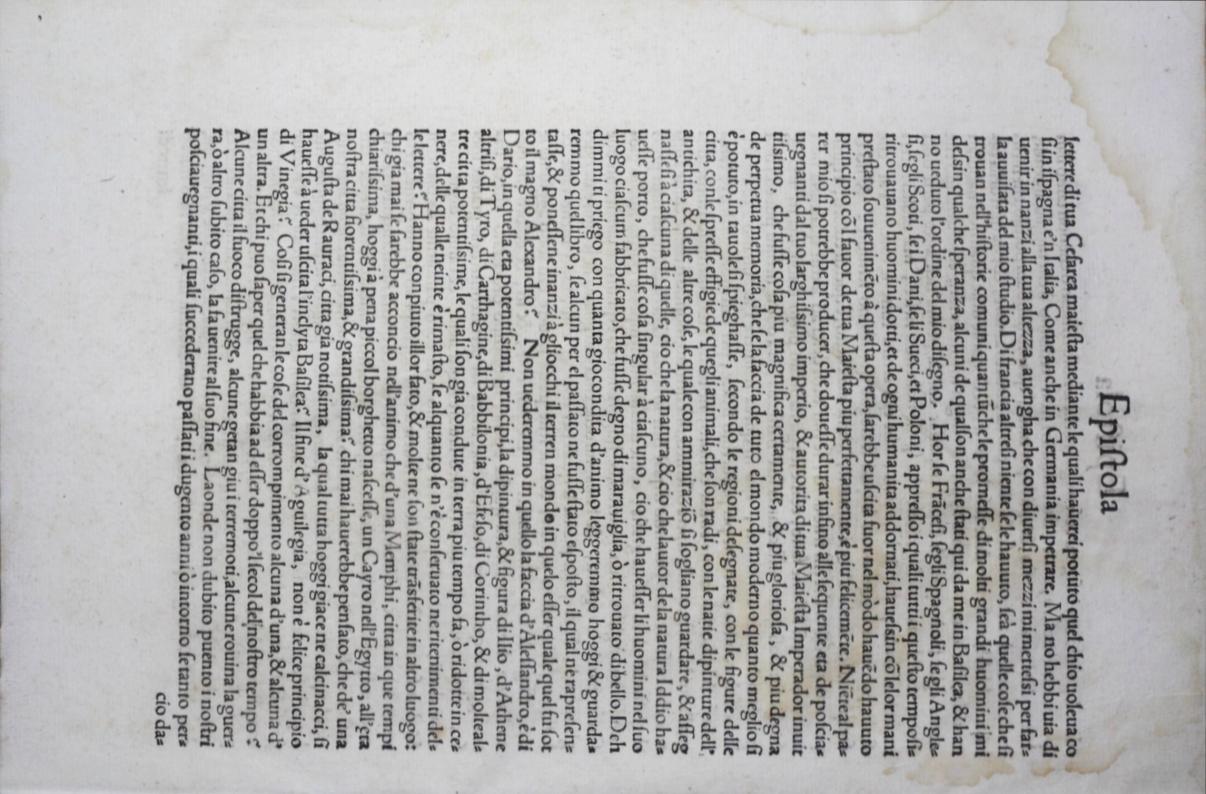 Epiſtola
lettere di tua Ceſarea maieſta mediante le quali hauerei potuto quel chio uoleua co
ſi in iſpagna e'n Italia, Come anche in Germania impetrare. Ma no hebbi uia di
uenir in nanzi alla tua altezza, auengha che con diuerſi mezzi mi metteſsi per fat⸗
la auuiſata del mio ſtudio. Di francia altreſi niente ſe le hauuto, ſe à quelle coſe che ſi
trouan nell'hiſtorie comuni quantũche le promeſſe di molti grandi huomini mi
deſsin qualche ſperanza, alcuni de qualſon anche ſtati qui da me in Baſilea, & han
no ueduto l'ordine del mio diſegno, Hor ſe Frãceſi, ſegli Spagnoli, ſe gli Angle⸗
ſi, ſegli Scoti, ſe i Dani, ſe li Sueci, et Poloni, appreſſo i quali tutti i queſto tempo ſi⸗
ritrouauano huomini dotti, et de ogni humanita addornati, haueſsin cõ le lor mani
preſtato ſouuenimẽto à queſta opera, ſarebbe uſcita fuor nel mõdo hauẽdo hauuto
principio cõ l fauor de tua Maieſta piu perfettamente, è piu felicemẽte. Niẽte al pa⸗
rer mio ſi potrebbe producer, che doueſſe durar inſino alle ſequente eta de poſcia⸗
uegnanti dal tuo larghiſsimo imperio, & autorita di tua Maieſta Imperador inuit
tiſsimo, che fuſſe coſa piu magnifica certamente, & piu glorioſa, & piu degna
de perpetua memoria, che ſe la faccia de tuto el mondo moderno quanto meglio ſi
è potuto, in tauole ſi ſpieghaſſe, ſecondo le regioni deſegnate, con le figure delle
citta, con le ſpeſſe effigie de quegli animali, che ſon radi, con le nauie dipinture dell'
antichita, & delle altre coſe, le quale con amiraziõ ſi ſogliano guardare, & aſſeg
naſſeſi à ciaſcuna di quelle, cio che la natura, & cio che l'autor de la natura Iddio ha⸗
ueſſe porto, che fuſſe coſa ſingular à ciaſcuno, cio che haueſſer li huomini nel ſuo
luogo ciaſcum fabbricato, che fuſſe degno di marauiglia, ò ritrouato di bello. Deh
dimmi ti priego con quanta giocondita d'animo leggeremmo hoggi & guarda⸗
remmo quel libro, ſe alcun per el paſſato ne fuſſe ſtato eſpoſto, il qual ne rapreſen⸗
taſſe, & poneſſene inanzi à gliocchi il terren mondo in quelo eſſer quale quel fu ſot
to il magno Alexandro? Non uederemmo in quello la faccia d'Aleſſandro, è di
Dario, in quella eta potentiſsimi principi, la dipintura, & figura di Ilio, d'Athene
altriſi, di Tyro, di Carthagine, di Babbilonia, d'Efeſo, di Corintho, & di molte al⸗
tre citta potentiſsime, le quali ſon gia condute in terra piu tempo fa, ò ridotte in ce⸗
nere, delle qualle neinte è rimaſto, ſe alquanto ſe n'è conſeruato ne ritenimenti del⸗
le lettere? Hanno conpiuto il lor fato, & molte ne ſon ſtate trãsferite in altro luogo:
chi gia mai ſe ſarebbe acconcio nell'animo che d'una Memphi, citta in que tempi
chiariſsima, hoggi à pena piccol borghetto naſceſſe, un Cayro nell'Egytto, all'eta
noſtra citta fiorentiſsima, & grandiſsima? chi mai hauerebbe penſato, che de' una
Auguſta de Rauraci, citta gia notiſsima, la qual tutta hoggi giace ne calcinacci, ſi
haueſſe à ueder uſcita l'inclyta Baſilea? Il fine d'Aguilegia, non è felice principio
di Vinegia? Coſi ſi generan le coſe del corrompimento alcuna d'una, & alcuna d'
un altra. Et chi puo ſaper quel che habbia ad eſſer doppo'l ſecol del noſtro tempo?
Alcune citta il fuoco diſtrugge, alcune getan giu i terremoti, alcune rouina la guer⸗
ra, ò altro ſubito caſo, la fa uenire al ſuo fine. Laonde non dubito puento i noſtri
poſcia uegnanti, i quali ſuccederano paſſati i dugento anni ò intorno ſe tanto per⸗
cio da⸗